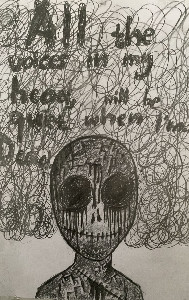 All the
voices in my
head, will be
quiet when I'm
Dead.